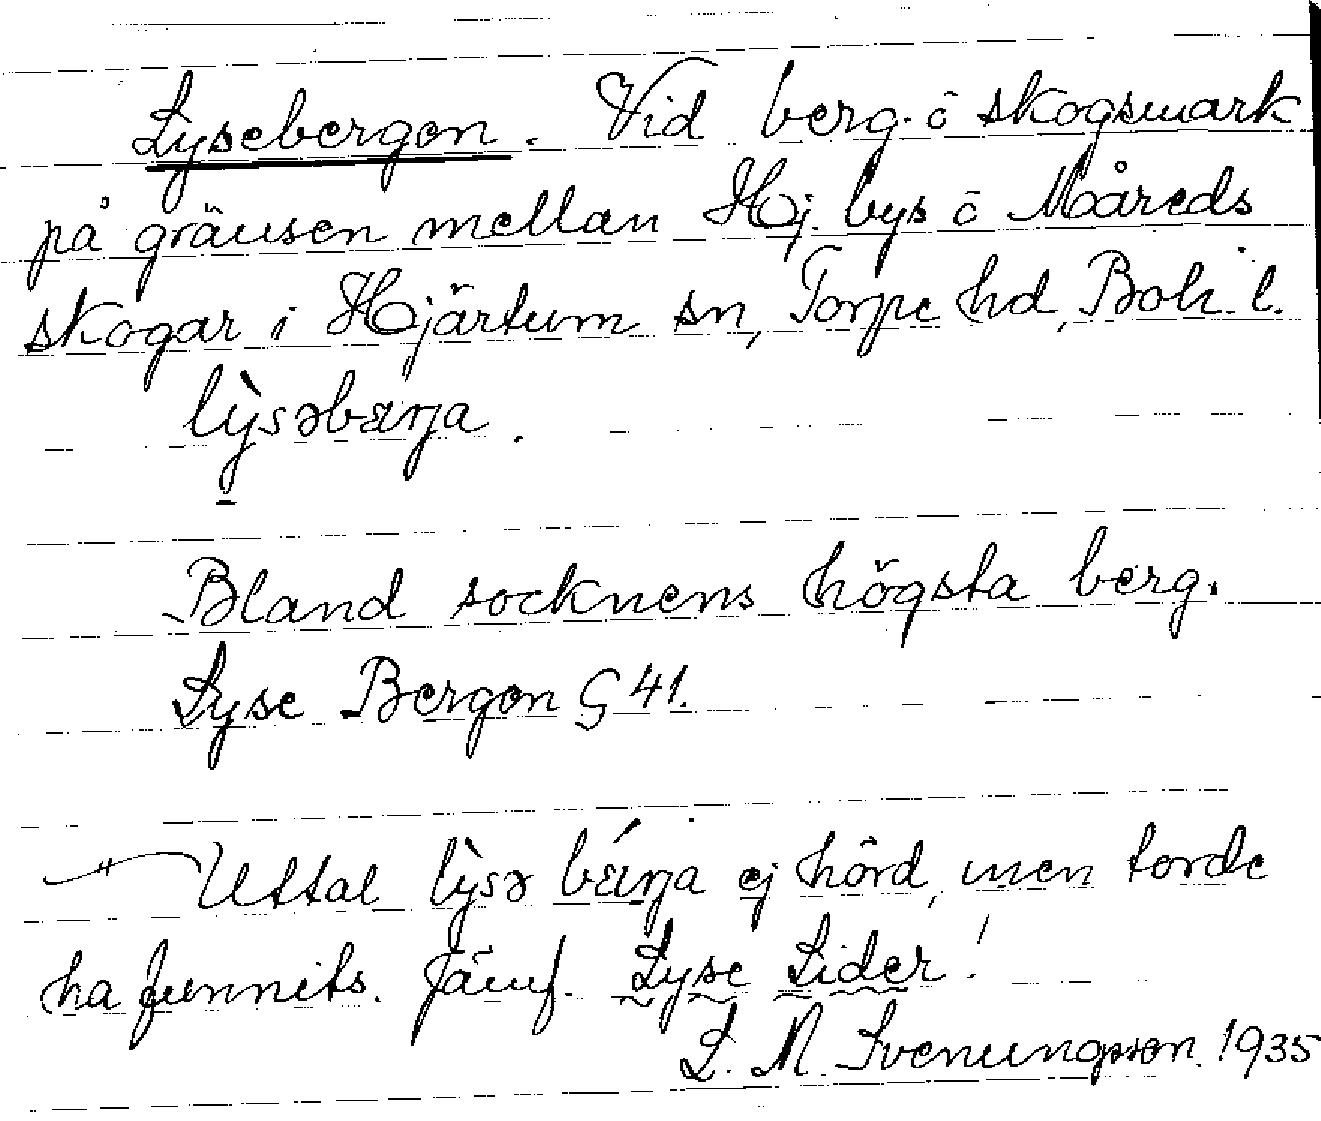 Lysebergen. Vid berg. o skogsmark
på gränsen mellan Hj. bys o Måreds
skogar i Hjärtum sn, Torpe hd, Boh. l.
lỳsəbærja.
Bland socknens högsta berg.
Lyse Bergen G 41.
Uttal lỳsə bǽrja ej hörd, men torde
ha funnits. Jämf. Lyse Lider!
L. M. Svenungsson. 1935